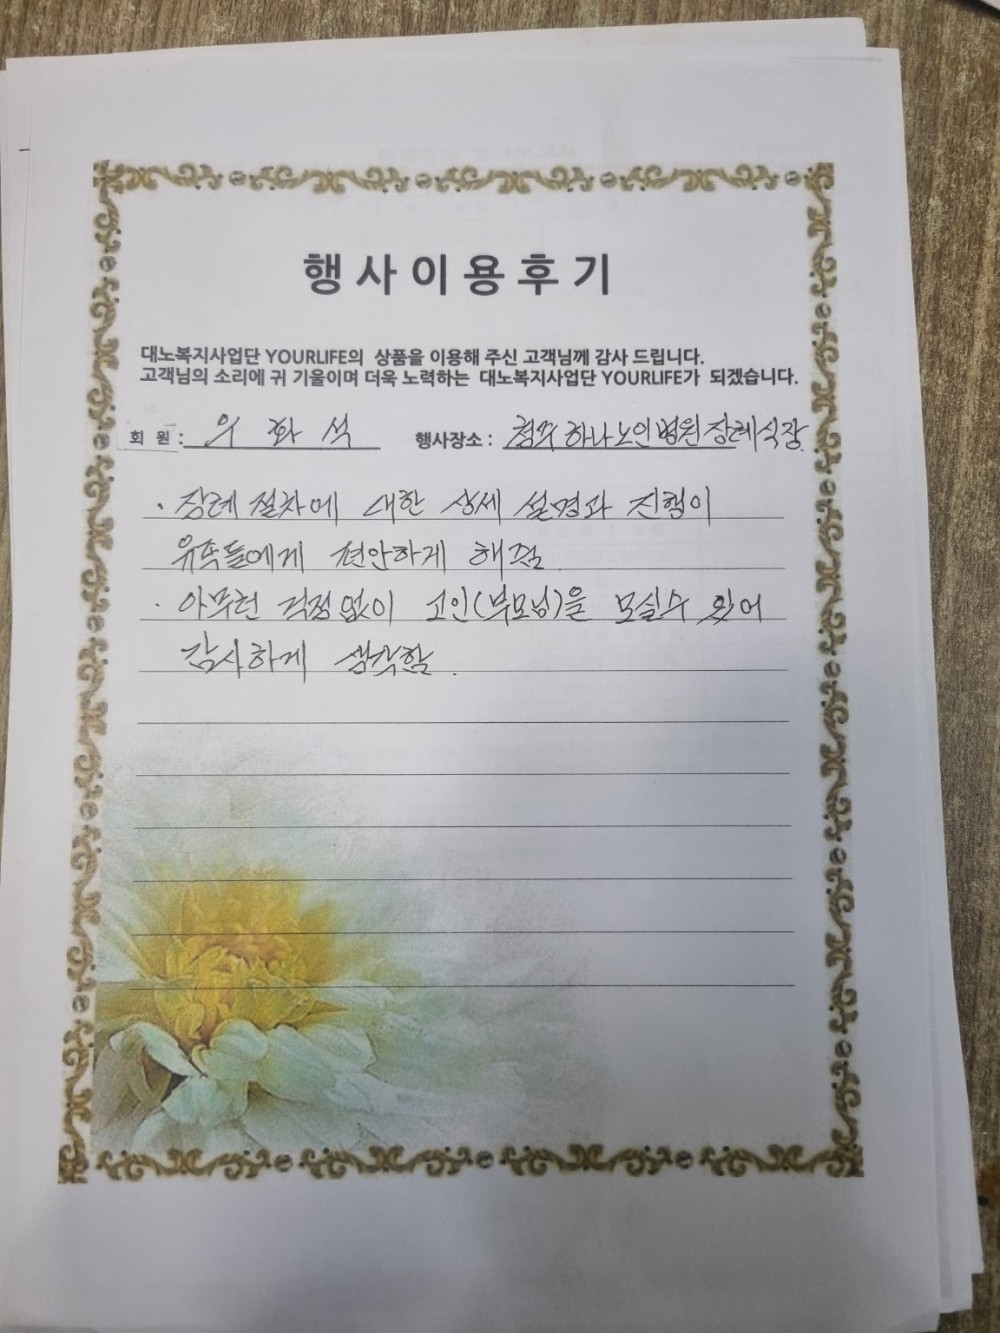 행사이용후기
대노복지사업단 YOURLIFE의 상품을 이용해 주신 고객님께 감사 드립니다.
고객님의 소리에 귀 기울이며 더욱 노력하는 대노복지사업단 YOURLIFE가 되겠습니다.
회 원 : 우 화 석 행사장소 : 청주 하나노인병원 장례식장
· 장례 절차에 대한 상세 설명과 진행이
유족들에게 편안하게 해줌.
· 아무런 걱정없이 고인(부모님)을 모실수 있어
감사하게 생각함.